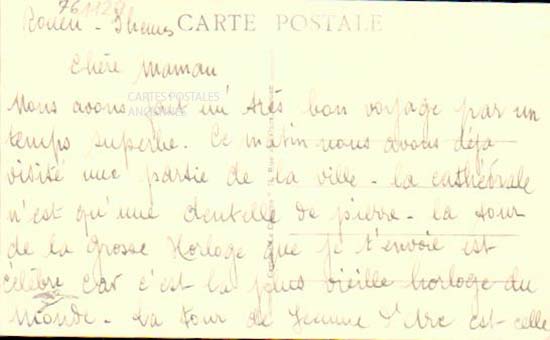 761129
CARTE POSTALE
Rouen - 9 heures
Chère Maman
CARTES POSTALES
ANCIENNES
Nous avons fait un très bon voyage par un
temps superbe. Ce matin nous avons déjà
visité une partie de la ville - la cathédrale
n'est qu'une dentelle de pierre - la tour
de la Grosse Horloge que je t'envoie est
célèbre car c'est la plus vieille horloge du
monde - La tour de Jeanne d'Arc est celle